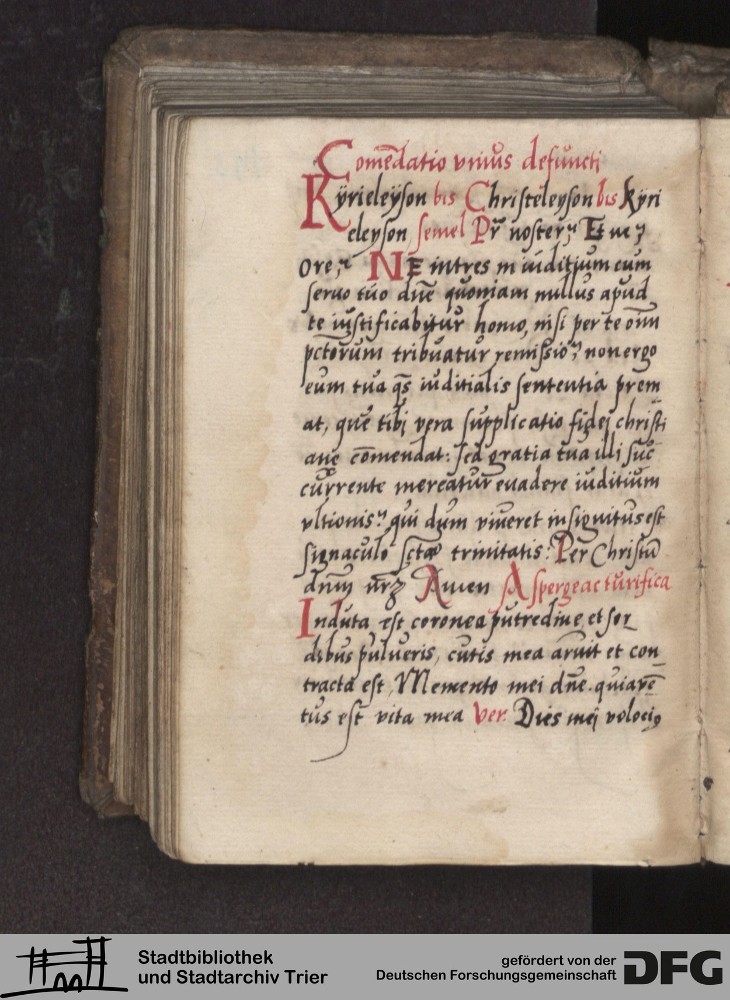 Comēdatio vnius defuncti
Kyrieleyson bis Christeleyson bis Kyri
eleyson semel Pr̄ noster Et ne
Ore; NE intres in iuditium cum
seruo tuo dn̄e quoniam nullus apud
te iustificabitur homo, nisi per te om̄
pctōrum tribuatur remissio; non ergo
eum tua qs̄ iuditialis sententia prem
at, quē tibi vera supplicatio fidei christi
ane cōmendat: sed gratia tua illi suc
currente mereatur euadere iuditium
vltionis, qui dum viueret insignitus est
signaculo sctē trinitatis: Per Christū
dnm̄ nr̄ȝ Amen Asperge ac turifica
Induta est coronea putredine, et sor
dibus pulueris, cutis mea aruit et con
tracta est, Memento mei dn̄e. quia
tus est vita mea Ver. Dies mei velociꝰ
Stadtbibliothek
und Stadtarchiv Trier
gefördert von der
Deutschen Forschungsgemeinschaft
DFG